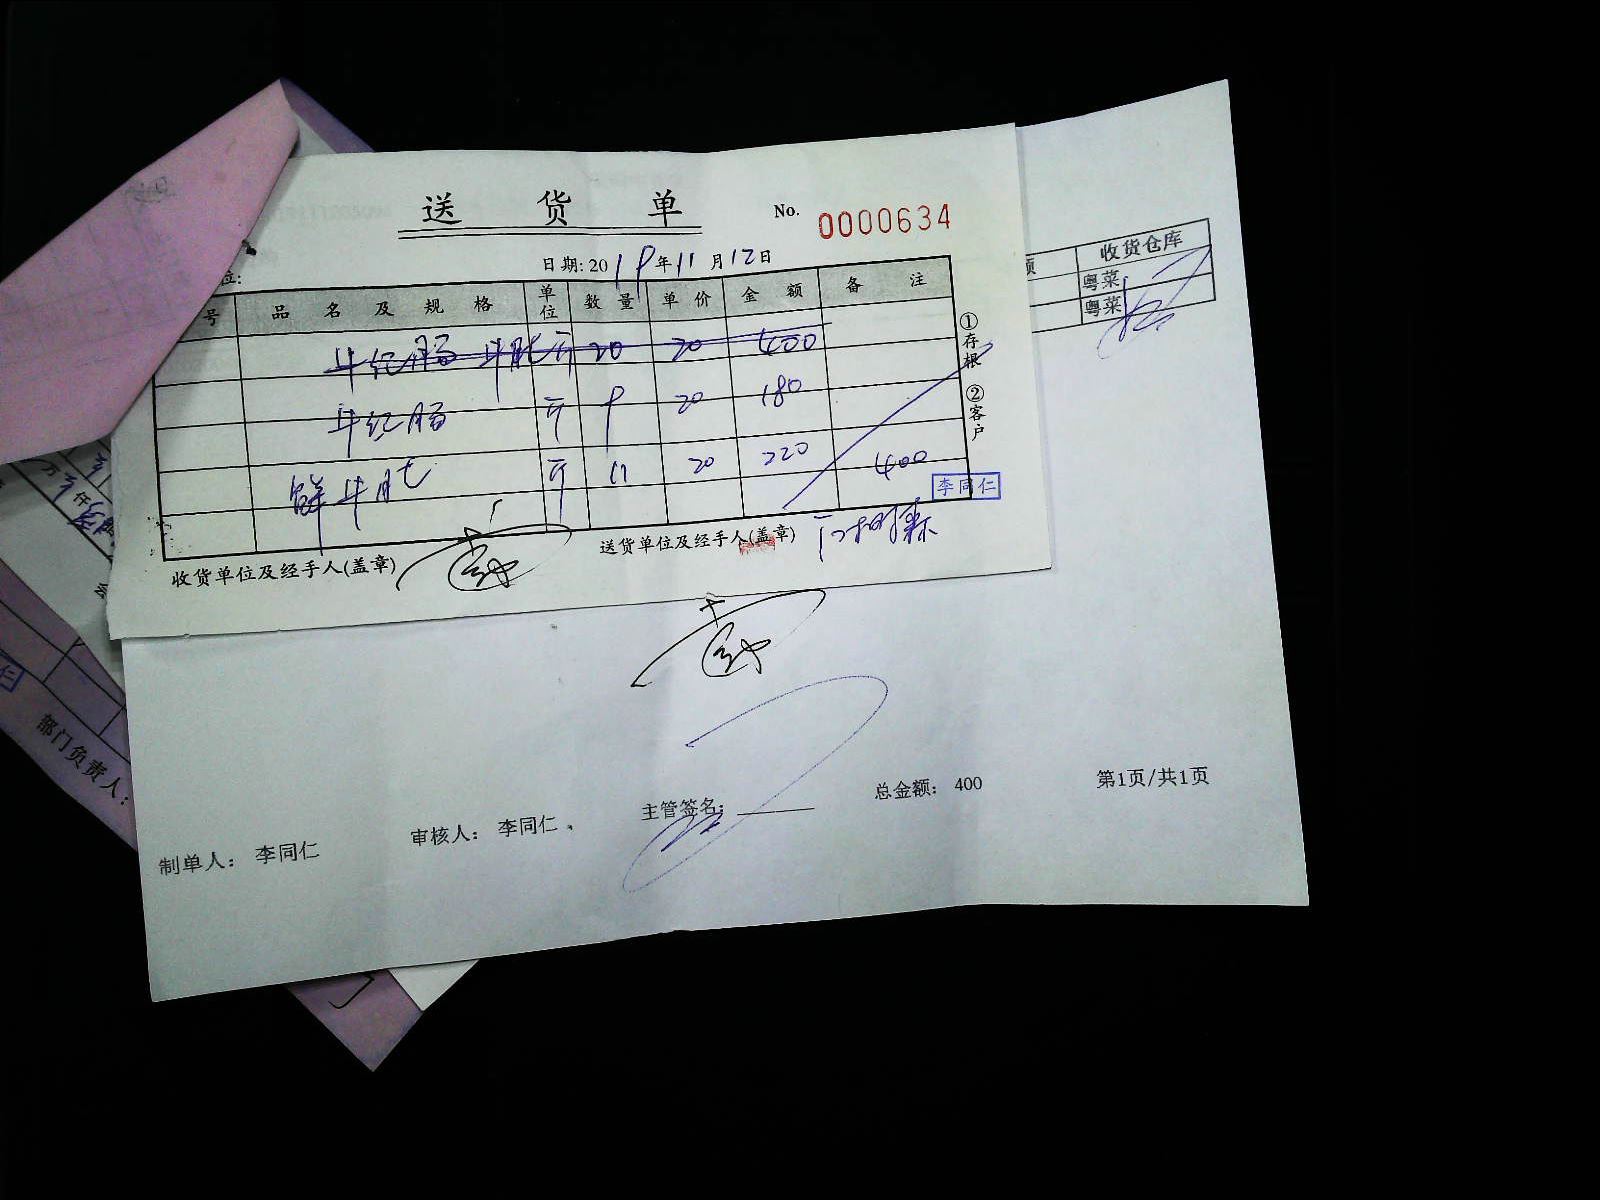 送货单
No. 0000634
日期: 2019年11月12日
位:
号 品名及规格 单位 数量 单价 金额 备注
牛红肠 牛肚 斤 20 20 400
牛红肠 斤 9 20 180
鲜牛肚 斤 11 20 220
400
李同仁
①存根 ②客户
收货单位及经手人(盖章)
送货单位及经手人(盖章)
额 收货仓库
粤菜
粤菜
万 仟
部门负责人:
仁
制单人: 李同仁 审核人: 李同仁 主管签名: 总金额: 400 第1页/共1页